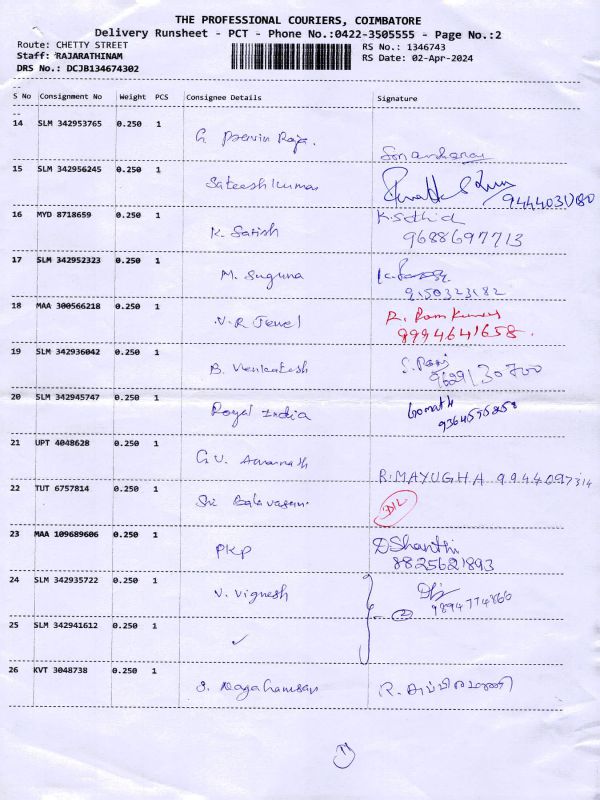 THE PROFESSIONAL COURIERS, COIMBATORE
Delivery Runsheet - PCT - Phone No.:0422-3505555 - Page No.:2
Route: CHETTY STREET
RS No.: 1346743
Staff: RAJARATHINAM
RS Date: 02-Apr-2024
DRS No.: DCJB134674302
S No Consignment No Weight PCS Consignee Details Signature
14 SLM 342953765 0.250 1 G. Pravin Raja.
15 SLM 342956245 0.250 1 Sateeshkumar
9444031080
16 MYD 8718659 0.250 1 K. Satish K.Sathid
9688697713
17 SLM 342952323 0.250 1 M. Suguna
9150323182
18 MAA 300566218 0.250 1 V.R Jewel R. Ram Kumar
8994641658.
19 SLM 342936042 0.250 1 B. Venkatesh
9629130700
20 SLM 342945747 0.250 1 Royal India Gomathi
9364595858
21 UPT 4048628 0.250 1 G.V. Amarnath R.MAYUGHA 9944097314
22 TUT 6757814 0.250 1 Sri D/L
23 MAA 109689606 0.250 1 PKP D Shanthi
8825621893
24 SLM 342935722 0.250 1 V. Vignesh 2
9894774866
25 SLM 342941612 0.250 1 ✓
26 KVT 3048738 0.250 1 S. Nagahamsan R. அபிலாமணி